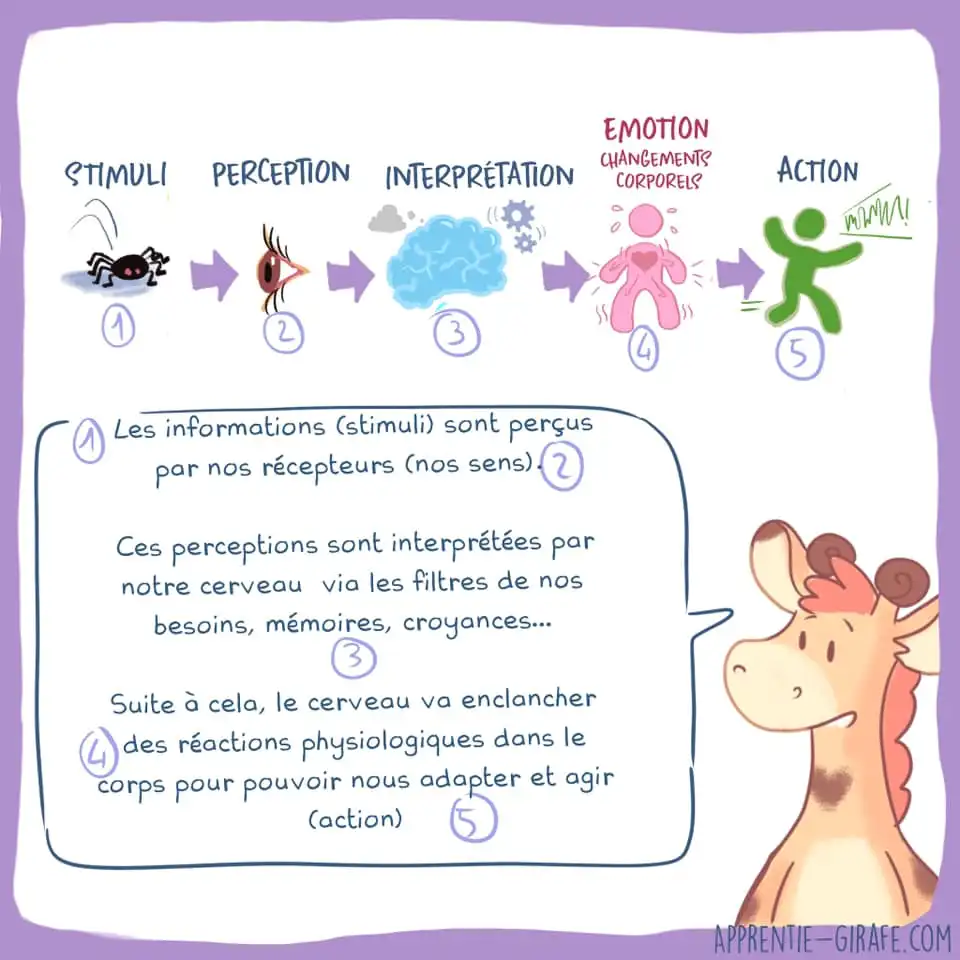 STIMULI
PERCEPTION
INTERPRÉTATION
EMOTION
CHANGEMENTS
CORPORELS
ACTION
1
2
3
4
5
1 Les informations (stimuli) sont perçus
par nos récepteurs (nos sens). 2
Ces perceptions sont interprétées par
notre cerveau via les filtres de nos
besoins, mémoires, croyances...
3
Suite à cela, le cerveau va enclancher
4 des réactions physiologiques dans le
corps pour pouvoir nous adapter et agir
(action) 5
APPRENTIE-GIRAFE.COM